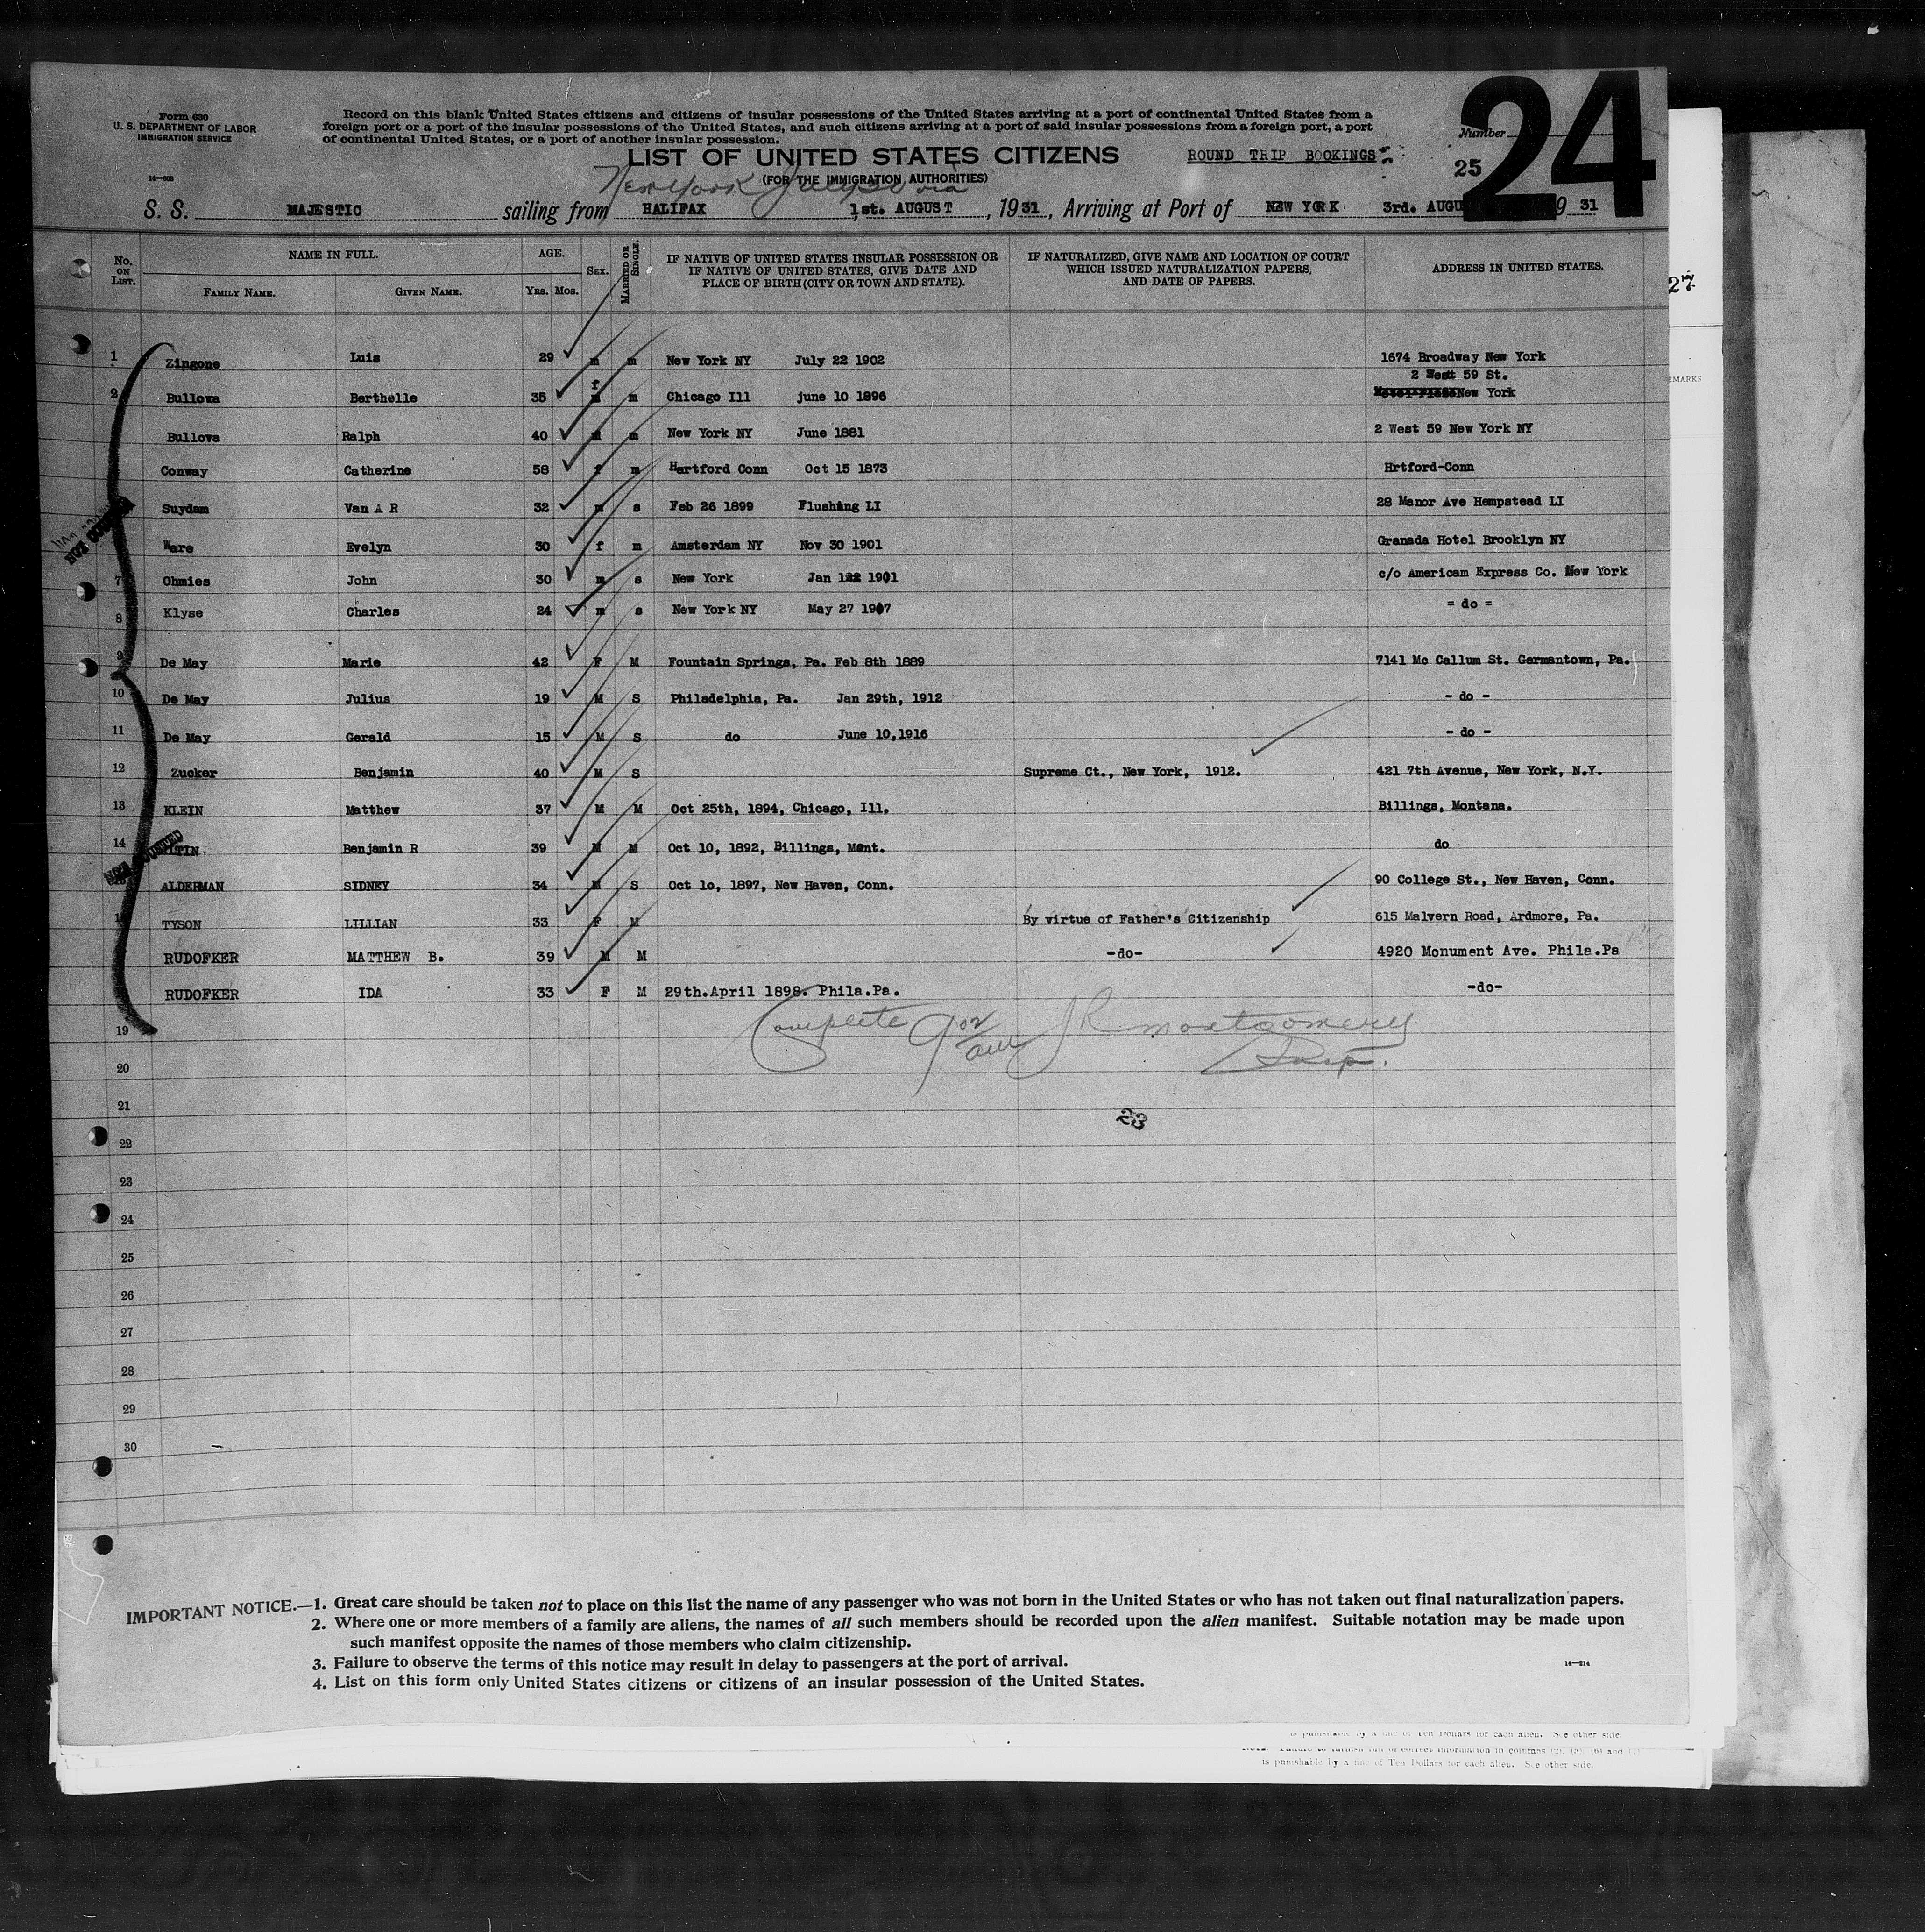 Form 630
U. S. DEPARTMENT OF LABOR
IMMIGRATION SERVICE
14—608
Record on this blank United States citizens and citizens of insular possessions of the United States arriving at a port of continental United States from a
foreign port or a port of the insular possessions of the United States, and such citizens arriving at a port of said insular possessions from a foreign port, a port
of continental United States, or a port of another insular possession.
LIST OF UNITED STATES CITIZENS
(FOR THE IMMIGRATION AUTHORITIES)
ROUND TRIP BOOKINGS
Number
25
24
New York July 31 via
S. S. MAJESTIC sailing from HALIFAX 1st. AUGUST, 1931, Arriving at Port of NEW YORK 3rd. AUGU 9 31
No. ON LIST. NAME IN FULL. FAMILY NAME. GIVEN NAME. AGE. YRS. MOS. SEX. MARRIED OR SINGLE. IF NATIVE OF UNITED STATES INSULAR POSSESSION OR IF NATIVE OF UNITED STATES, GIVE DATE AND PLACE OF BIRTH (CITY OR TOWN AND STATE). IF NATURALIZED, GIVE NAME AND LOCATION OF COURT WHICH ISSUED NATURALIZATION PAPERS, AND DATE OF PAPERS. ADDRESS IN UNITED STATES.
27
EMARKS
1 Zingone Luis 29 m m New York NY July 22 1902 1674 Broadway New York
2 Bullowa Berthelle 35 f m Chicago Ill june 10 1896 2 West 59 St. New York
Bullova Ralph 40 m m New York NY June 1881 2 West 59 New York NY
Conway Catherine 58 f m Hartford Conn Oct 15 1873 Hrtford-Conn
Suydam Van A R 32 m s Feb 26 1899 Flushing LI 28 Manor Ave Hempstead LI
Ware Evelyn 30 f m Amsterdam NY Nov 30 1901 Granada Hotel Brooklyn NY
7 Ohmies John 30 m s New York Jan 122 1901 c/o Americam Express Co. New York
8 Klyse Charles 24 m s New York NY May 27 1907 = do =
9 De May Marie 42 F M Fountain Springs, Pa. Feb 8th 1889 7141 Mc Callum St. Germantown, Pa.
10 De May Julius 19 M S Philadelphia, Pa. Jan 29th, 1912 - do -
11 De May Gerald 15 M S do June 10,1916 - do -
12 Zucker Benjamin 40 M S Supreme Ct., New York, 1912. 421 7th Avenue, New York, N.Y.
13 KLEIN Matthew 37 M M Oct 25th, 1894, Chicago, Ill. Billings, Montana.
14 Benjamin R 39 M M Oct 10, 1892, Billings, Mont. do
ALDERMAN SIDNEY 34 M S Oct 1o, 1897, New Haven, Conn. 90 College St., New Haven, Conn.
TYSON LILLIAN 33 F M By virtue of Father's Citizenship 615 Malvern Road, Ardmore, Pa.
RUDOFKER MATTHEW B. 39 M M -do- 4920 Monument Ave. Phila.Pa
RUDOFKER IDA 33 F M 29th.April 1898. Phila.Pa. -do-
19
Complete J R Montgomery
Insp.
20
21
23
22
23
24
25
26
27
28
29
30
IMPORTANT NOTICE.—1. Great care should be taken not to place on this list the name of any passenger who was not born in the United States or who has not taken out final naturalization papers.
2. Where one or more members of a family are aliens, the names of all such members should be recorded upon the alien manifest. Suitable notation may be made upon
such manifest opposite the names of those members who claim citizenship.
3. Failure to observe the terms of this notice may result in delay to passengers at the port of arrival.
14—214
4. List on this form only United States citizens or citizens of an insular possession of the United States.
is punishable by a fine of Ten Dollars for each alien. See other side.
is punishable by a fine of Ten Dollars for each alien. See other side.